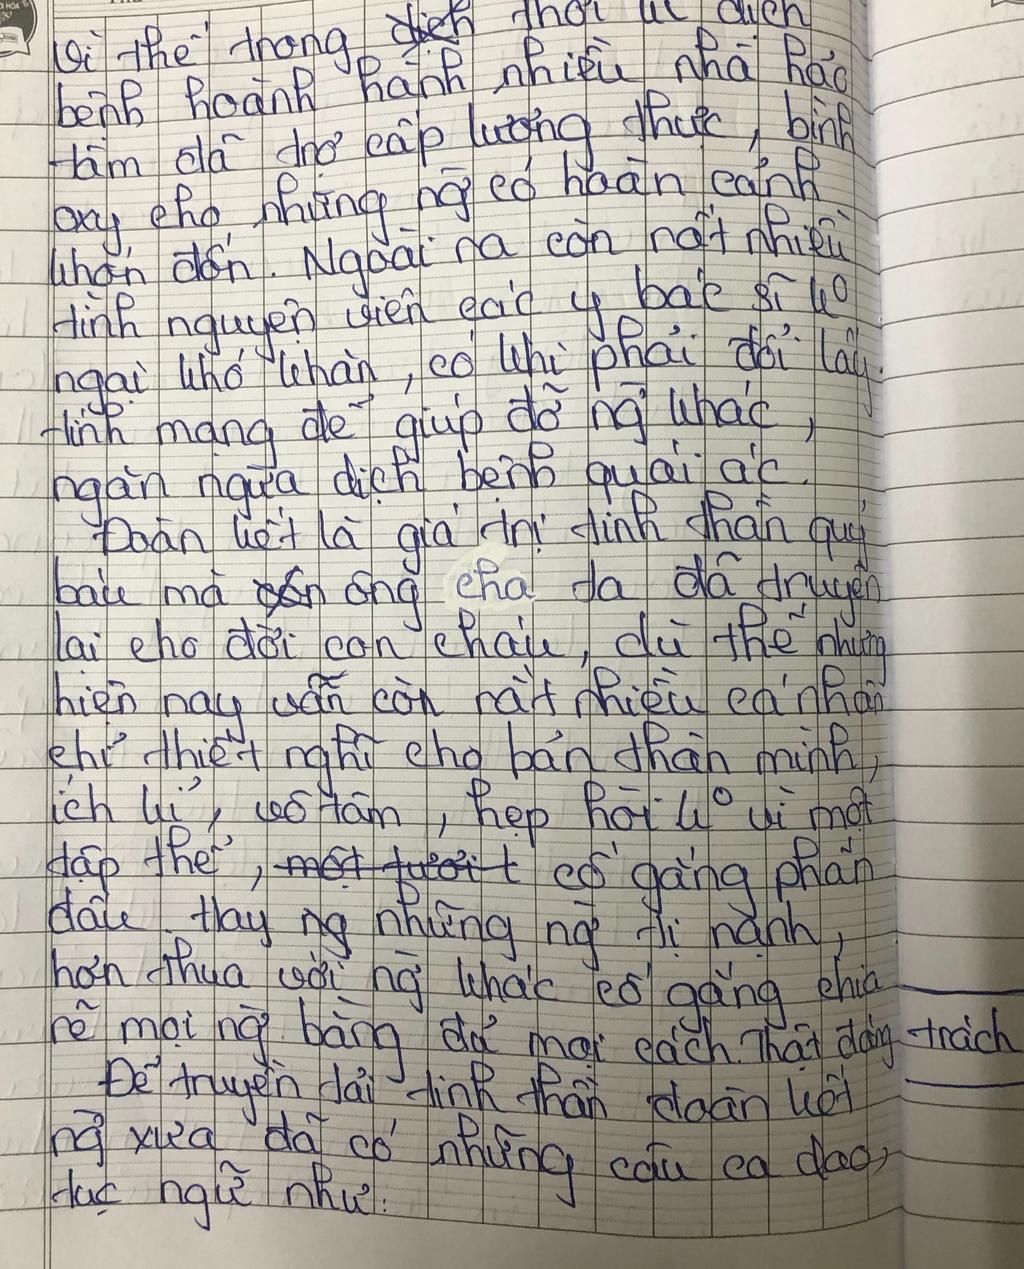 Vì thế trong thời kì dịch
bệnh hoành hành nhiều nhà hảo
tâm đã trợ cấp lương thực, bình
oxy cho những ng̀ có hoàn cảnh
khốn đốn. Ngoài ra còn rất nhiều
tình nguyện viên các y bác sĩ k⁰
ngại khó khăn, có khi phải đổi lấy
tính mạng để giúp đỡ ng̀ khác,
ngăn ngừa dịch bệnh quái ác.
Đoàn kết là giá trị tinh thần quý
báu mà ông cha ta đã truyền
lại cho đời con cháu, dù thế nhưng
hiện nay vẫn còn rất nhiều cá nhân
chỉ thiết nghĩ cho bản thân mình,
ích kỉ, vô tâm, hẹp hòi k⁰ vì một
tập thể, cố gắng phấn
đấu. Hay ng những ng̀ tị nạnh,
hơn thua với ng̀ khác cố gắng chia
rẽ mọi ng̀ bằng đủ mọi cách. Thật đáng trách
Để truyền tải tinh thần đoàn kết
ng̀ xưa đã có những câu ca dao,
tục ngữ như: